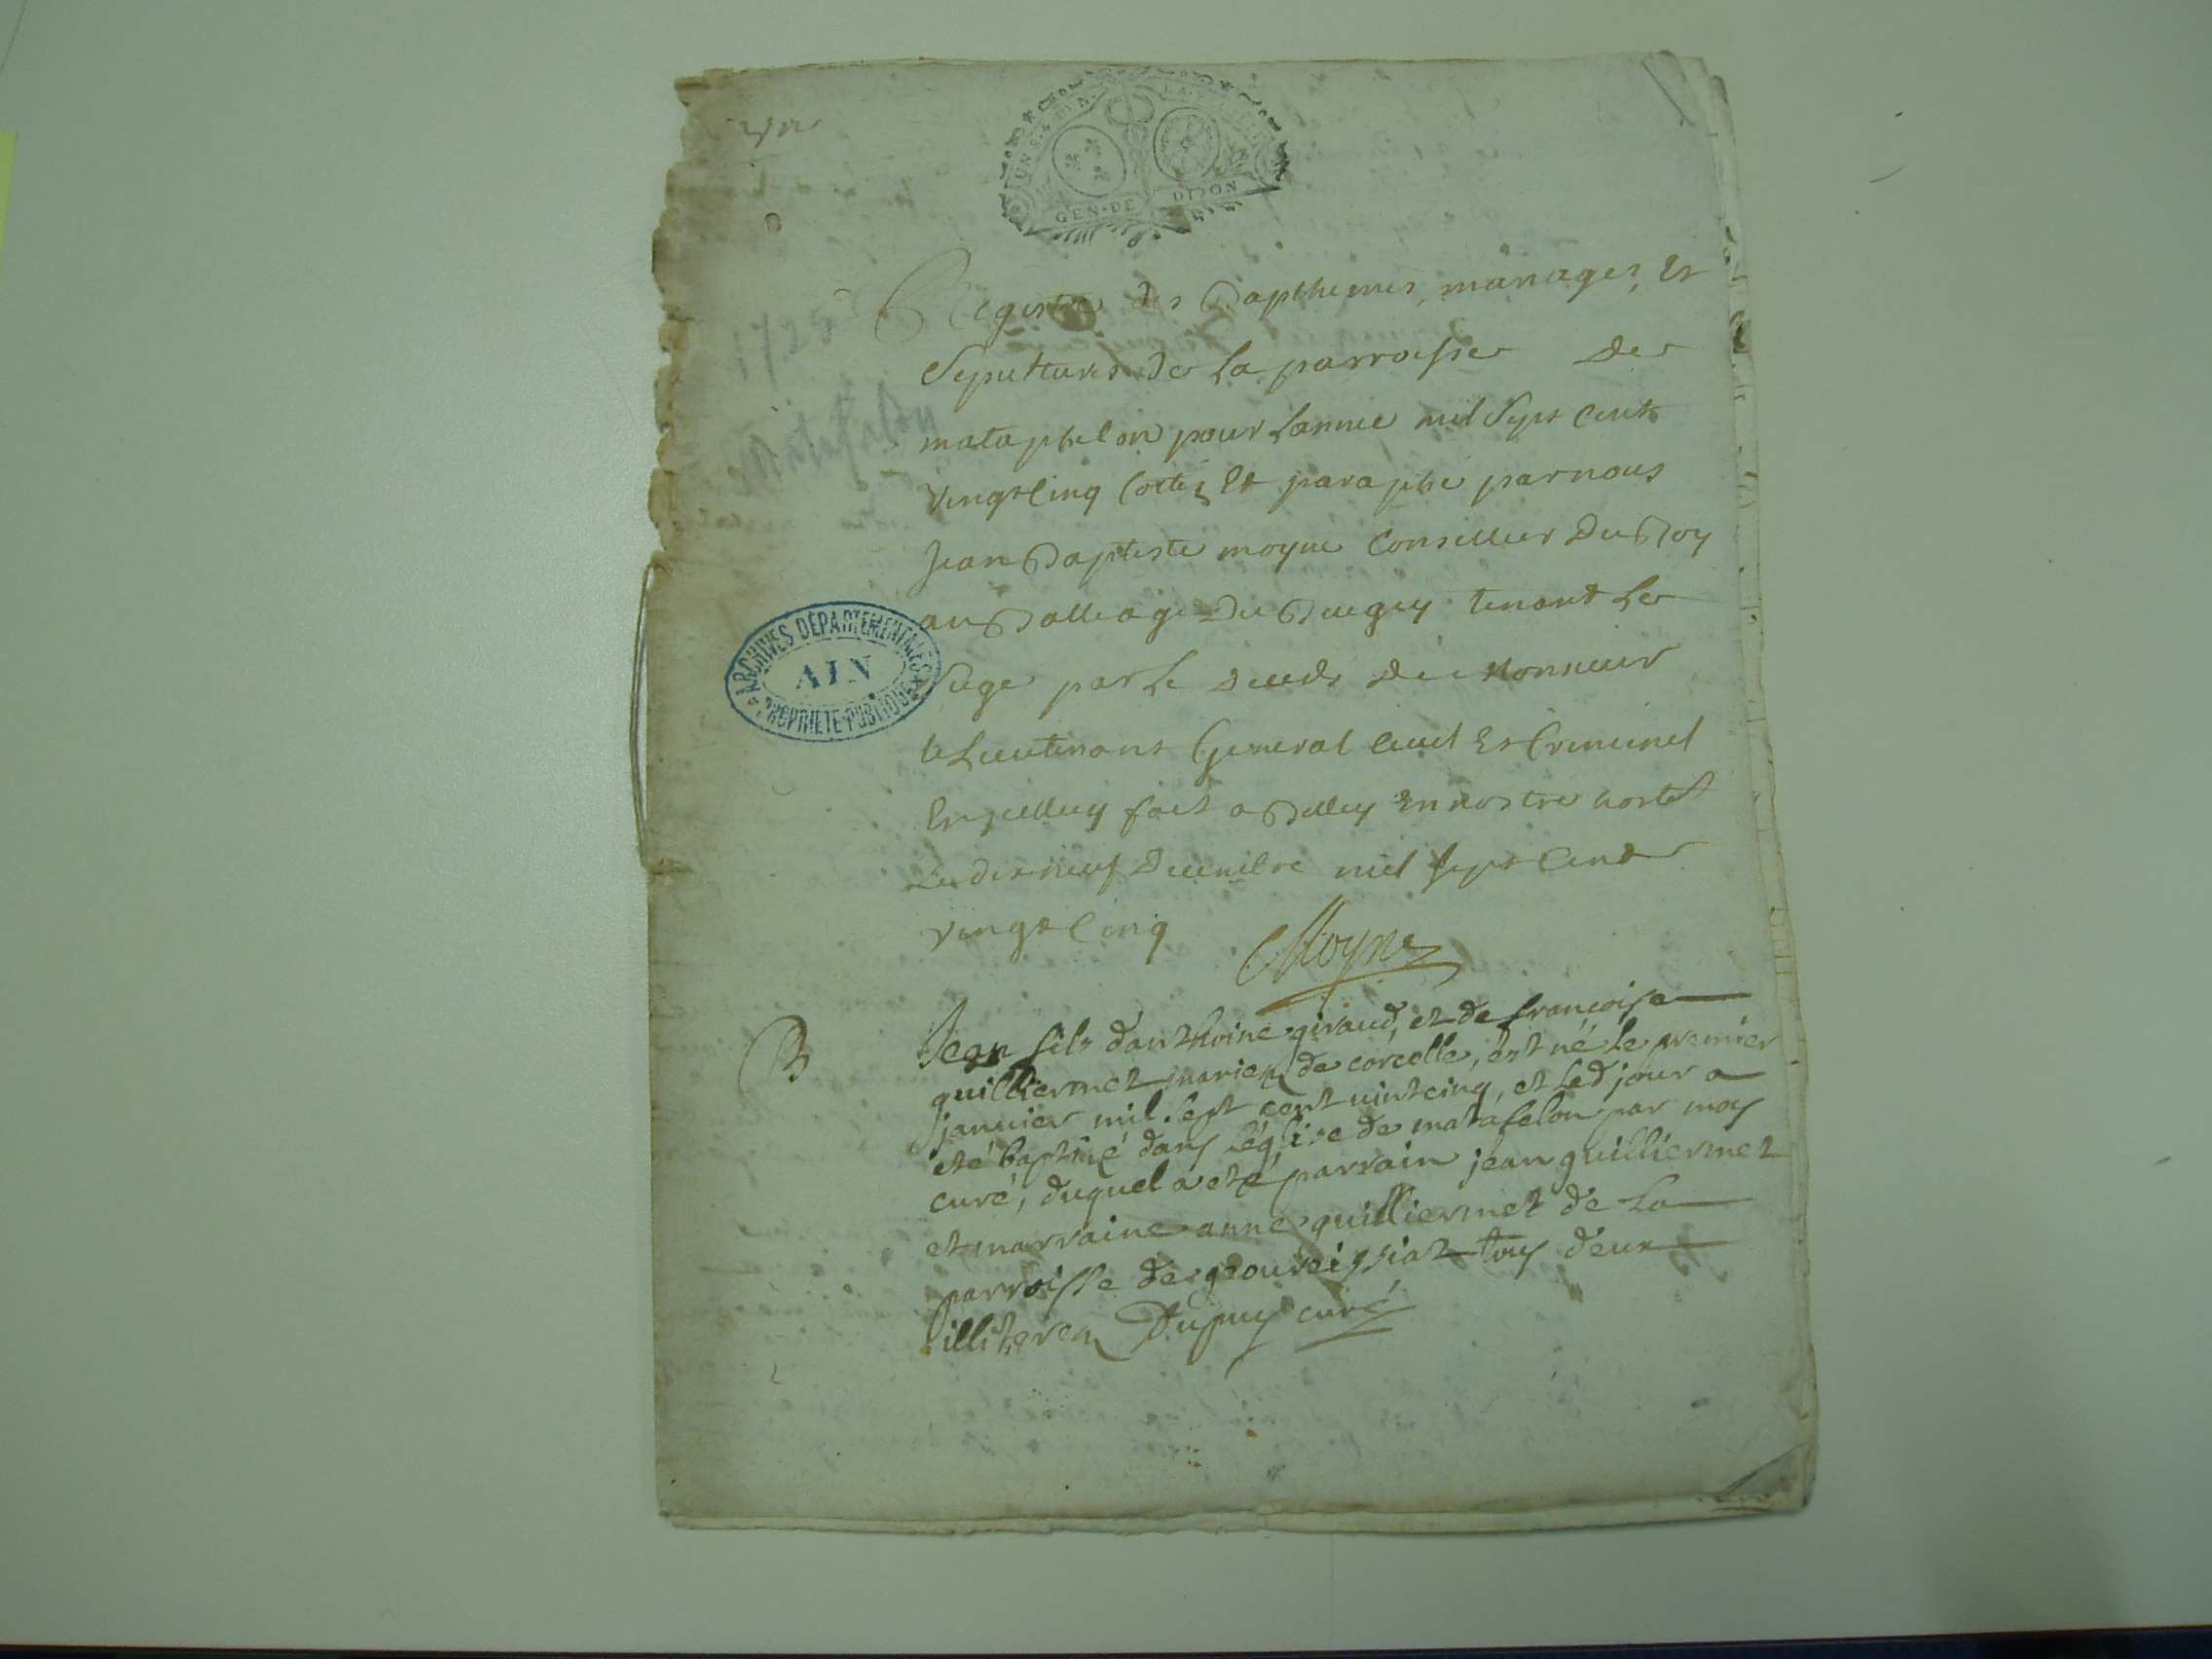 GEN·DE DIJON
1725
Matafelon
Registre des Bapthemes, mariages, Et
Sepultures de La parroisse De
mataphelon pour Lannee mil Sept Cent
Vingt Cinq Cottez Et paraphé par nous
Jean Baptiste moyne Conseillier Du Roy
au Balliage Du Bugey tenant Le
Siege par Le Deceds De Monsieur
le Lieutenant General Civil Et Criminel
En jcelluy fait a Belley En nostre hostel
Le dix neuf Decembre mil Sept Cent
Vingt Cinq
Moyne
ARCHIVES DÉPARTEMENTALES
AIN
PROPRIÉTÉ PUBLIQUE
B
Jean fils d'anthoine giraud, et de françoise
guilliermet mariez de corcelle, est né le premier
janvier mil sept cent vint cinq, et led jour a
eté baptisé dans l'église de matafelon par moy
curé, duquel a eté parrain jean guilliermet
et marraine anne guilliermet de La
parroisse de geovreissiat tous deux
illiterez Dupuy curé